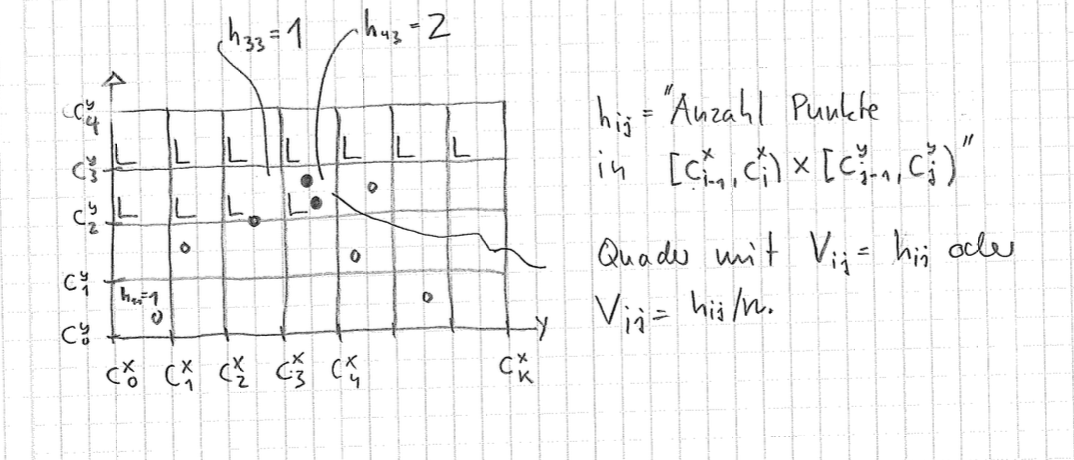 h₃₃ = 1
h₄₃ = 2
C₄ʸ
L L L L L L L
C₃ʸ
L L L L
C₂ʸ
C₁ʸ
h₁₁=1
C₀ʸ
y
C₀ˣ C₁ˣ C₂ˣ C₃ˣ C₄ˣ C_Kˣ
h_ij = "Anzahl Punkte
in [C_{i-1}^x, C_i^x) × [C_{j-1}^y, C_j^y)"
Quader mit V_ij = h_ij oder
V_ij = h_ij/n.